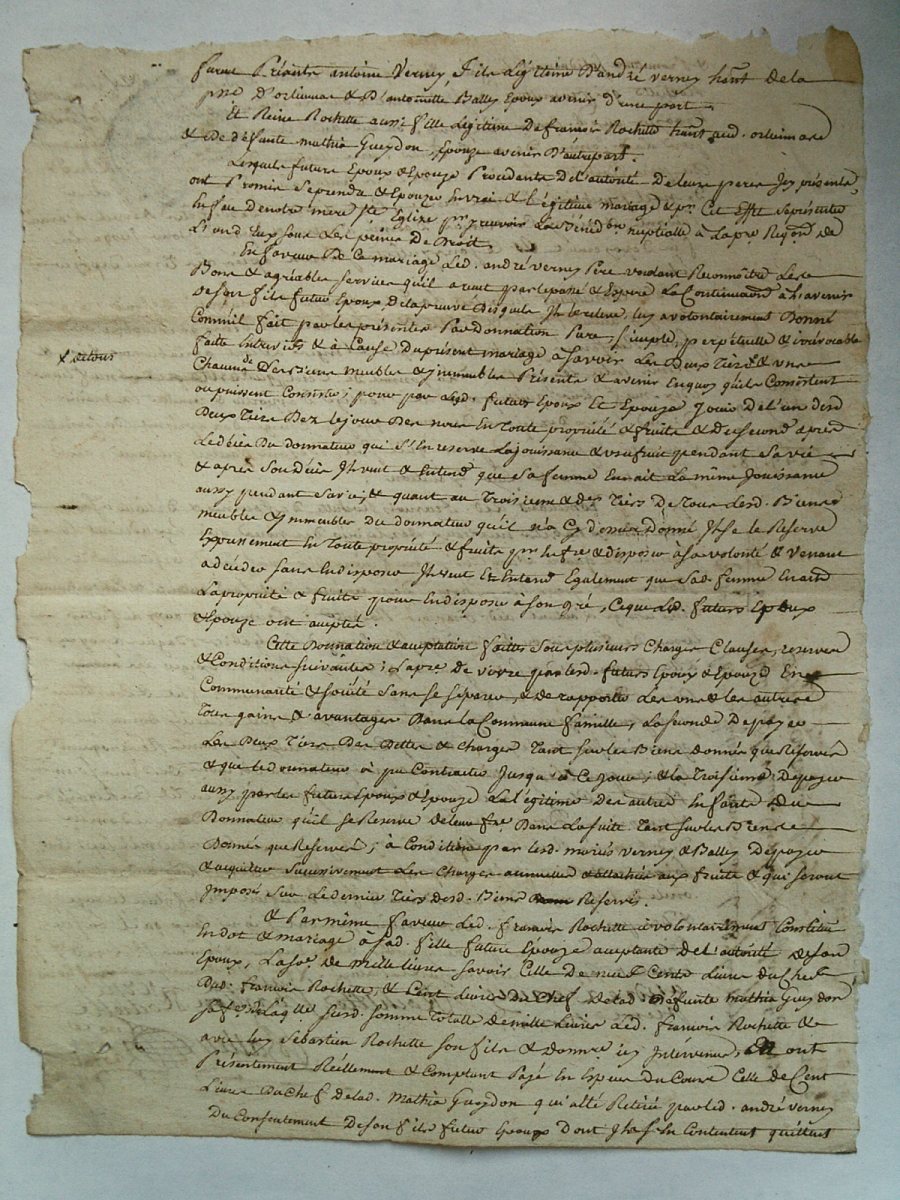 furent Présents antoine Verney, fils Légitime D'andré verney habt de la
psse D'orlienas & D'antoinette Balley Epoux avenir D'une part
Et Reine Rochette aussi fille Légitime De françois Rochette habt aud. orlienas
& de défunte mathia Gueydon, Epouze avenir D'autrepart.
Lesquels futurs Epoux & Epouze Procédants De L'autorité De leurs peres Icy présents
ont Promis Se prendre & Epouzer En vrai & légitime mariage & pr. Cet Effet Se présenter
En face De notre mere Ste Eglise pr. y recevoir La Bénédon nuptialle à La pre. Requon De
L'un d'Eux sous Les peines De Droit.
En faveur De Ce mariage Led. andré verney Pere voulant Reconnoître Les
Bons & agréables services qu'il a reçut par le passé & Espere La Continuaon à L'avenir
De son fils futur Epoux, De la preuve Desquels Il le releve, luy a volontairement Donné
Comm'il fait par les présentes Par donnation Pure, simple, perpétuelle & irrévocable
faite Entrevifs & à Cause Du présent mariage à savoir Les Deux Tiers & une
x retour
Chacune De ses Biens meubles & immeubles Présents & avenir En quoy qu'ils Consistent
ou puissent Consister; pour par Lesd. futurs Epoux Et Epouze Jouir De l'un desd
Deux Tiers Dez le jour Des noces En Toute propriété & fruits & Du second après
Le décès Du donnateur qui S'En reserve La jouissance & usufruit pendant sa vie
& après Son Décès Il veut & Entend que sa femme En ait La même Jouissance
aussy pendant sa vie, & quant au Troisieme & der Tiers De Tous Lesd. Biens
meubles & immeubles Du donnateur qu'il n'a Cy dessus Donné Il Se le Reserve
Expressément En Toute propriété & fruits pr. En fre & disposer à sa volonté & Venant
a décéder sans En disposer Il veut Et Entend Egalement que Sad. femme En ait
La propriété & fruits pour En disposer à Son gré, Ce que Lesd. futurs Epoux
& Epouze ont accepté.
Cette Donnation & acceptation faites Sous plusieurs Charges Clauses, reserves
& Conditions suivantes; La pre. de vivre par lesd. futurs Epoux & Epouze En
Communauté & société sans se séparer, & de rapporter Les uns & les autres
Tous gains & avantages Dans la Commune famille, La seconde De payer
Les Deux Tiers Des Dettes & Charges Tant sur les Biens donnés que Reservés
& que le donnateur à pu Contracter Jusqu'à Ce Jour; & la Troisieme De payer
aussy par les futurs Epoux & Epouze La légitime Des autres Enfants Du
Donnateur qu'il se Reserve De leur fre. Dans La suite Tant sur les Biens
Donnés que Reservés; à Condition que par Lesd. mariés verney & Balley De payer
& acquitter successivement Les Charges annuelles attachées aux fruits & qui seront
Imposé Sur Le dernier Tiers desd. Biens Reservés.
& Par même faveur Led. françois Rochette à volontairement Constitué
En dot & mariage à Sad. fille future Epouze acceptante De L'autorité De son
Epoux, La Soe. de mille livres savoir Celle De neuf Cents Livres Du Chef
Dud. françois Rochette, & Cent Livres Du Chef De lad. Défunte mathia Gueydon
sa fe. Laqlle susd. somme Totalle De mille Livres Led. françois Rochette &
avec luy Sebastien Rochette son fils & donnre. icy Intervenu, ont
Présentement Réellement & Comptant Payé En Especes Du Cours Celle de Cent
Livres Du Chef De lad. Mathia Gueydon qui à été Retirée par led. andré verney
Du Consentement De son fils futur Epoux Dont Il se fe. En Contentent quittent